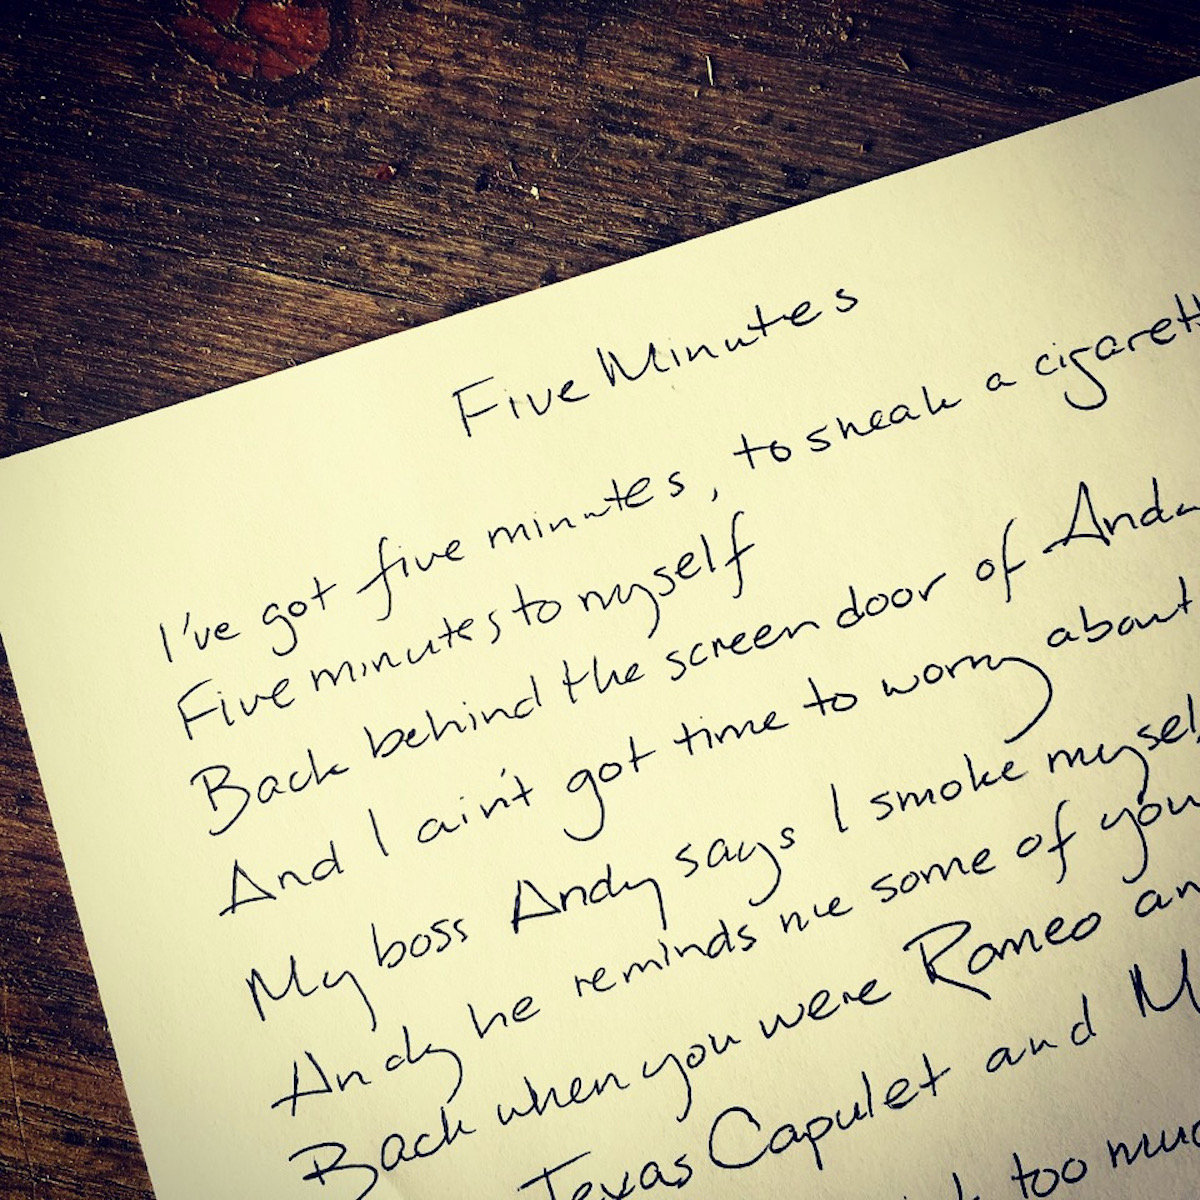 Five Minutes
I've got five minutes, to sneak a cigarett
Five minutes to myself
Back behind the screen door of Andy
And I ain't got time to worry about
My boss Andy says I smoke mysel
Andy he reminds me some of you
Back when you were Romeo an
Texas Capulet and M
too muc